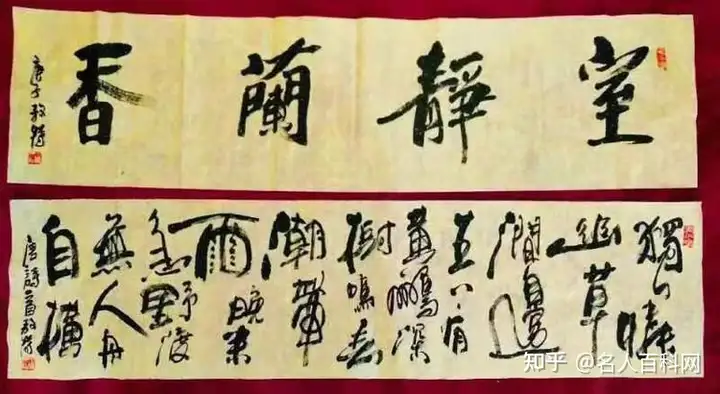 室靜蘭香
庚子
獨憐
幽草
澗邊
生上有
黄鸝深
樹鳴春
潮帶
雨晚来
急野渡
無人舟
自橫
唐詩一首
知乎 @名人百科网